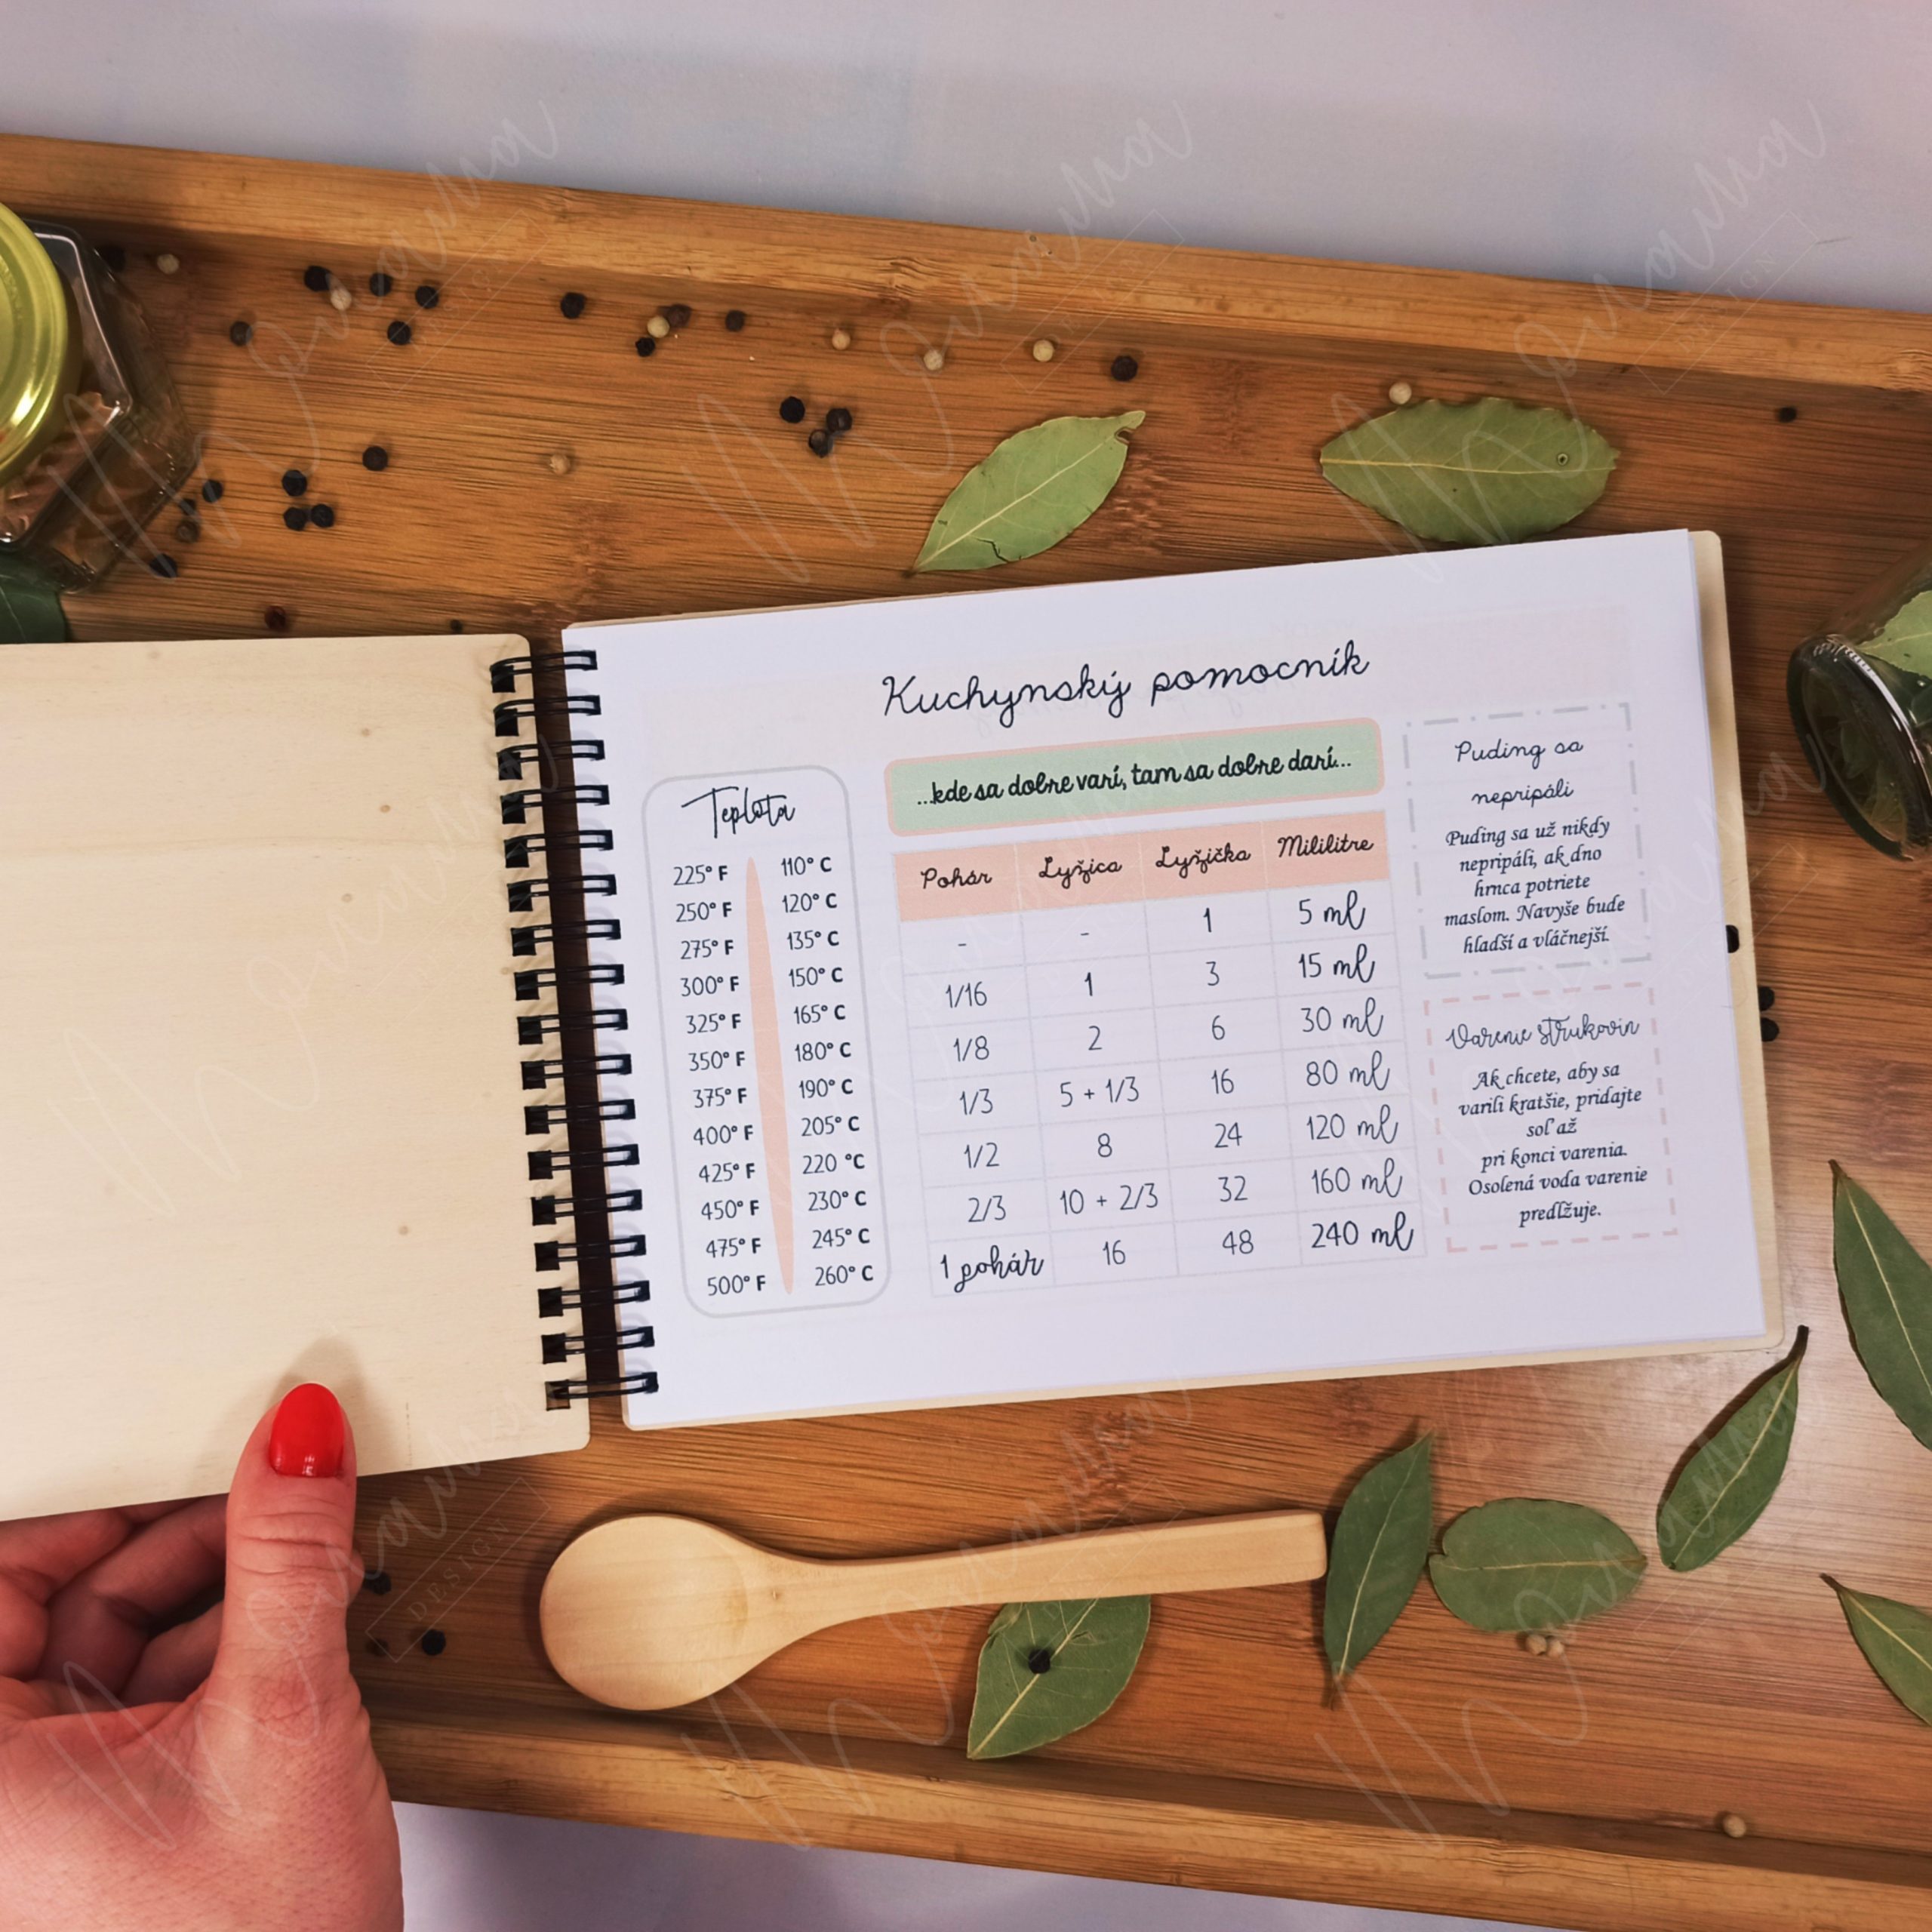 Kuchynský pomocník
...kde sa dobre varí, tam sa dobre darí...
Teplota
225° F 110° C
250° F 120° C
275° F 135° C
300° F 150° C
325° F 165° C
350° F 180° C
375° F 190° C
400° F 205° C
425° F 220 °C
450° F 230° C
475° F 245° C
500° F 260° C
Pohár Lyžica Lyžička Mililitre
- - 1 5 ml
1/16 1 3 15 ml
1/8 2 6 30 ml
1/3 5 + 1/3 16 80 ml
1/2 8 24 120 ml
2/3 10 + 2/3 32 160 ml
1 pohár 16 48 240 ml
Puding sa
nepripáli
Puding sa už nikdy
nepripáli, ak dno
hrnca potriete
maslom. Navyše bude
hladší a vláčnejší.
Varenie strukovín
Ak chcete, aby sa
varili kratšie, pridajte
soľ až
pri konci varenia.
Osolená voda varenie
predlžuje.
DESIGN
DESIGN
DESIGN
DESIGN